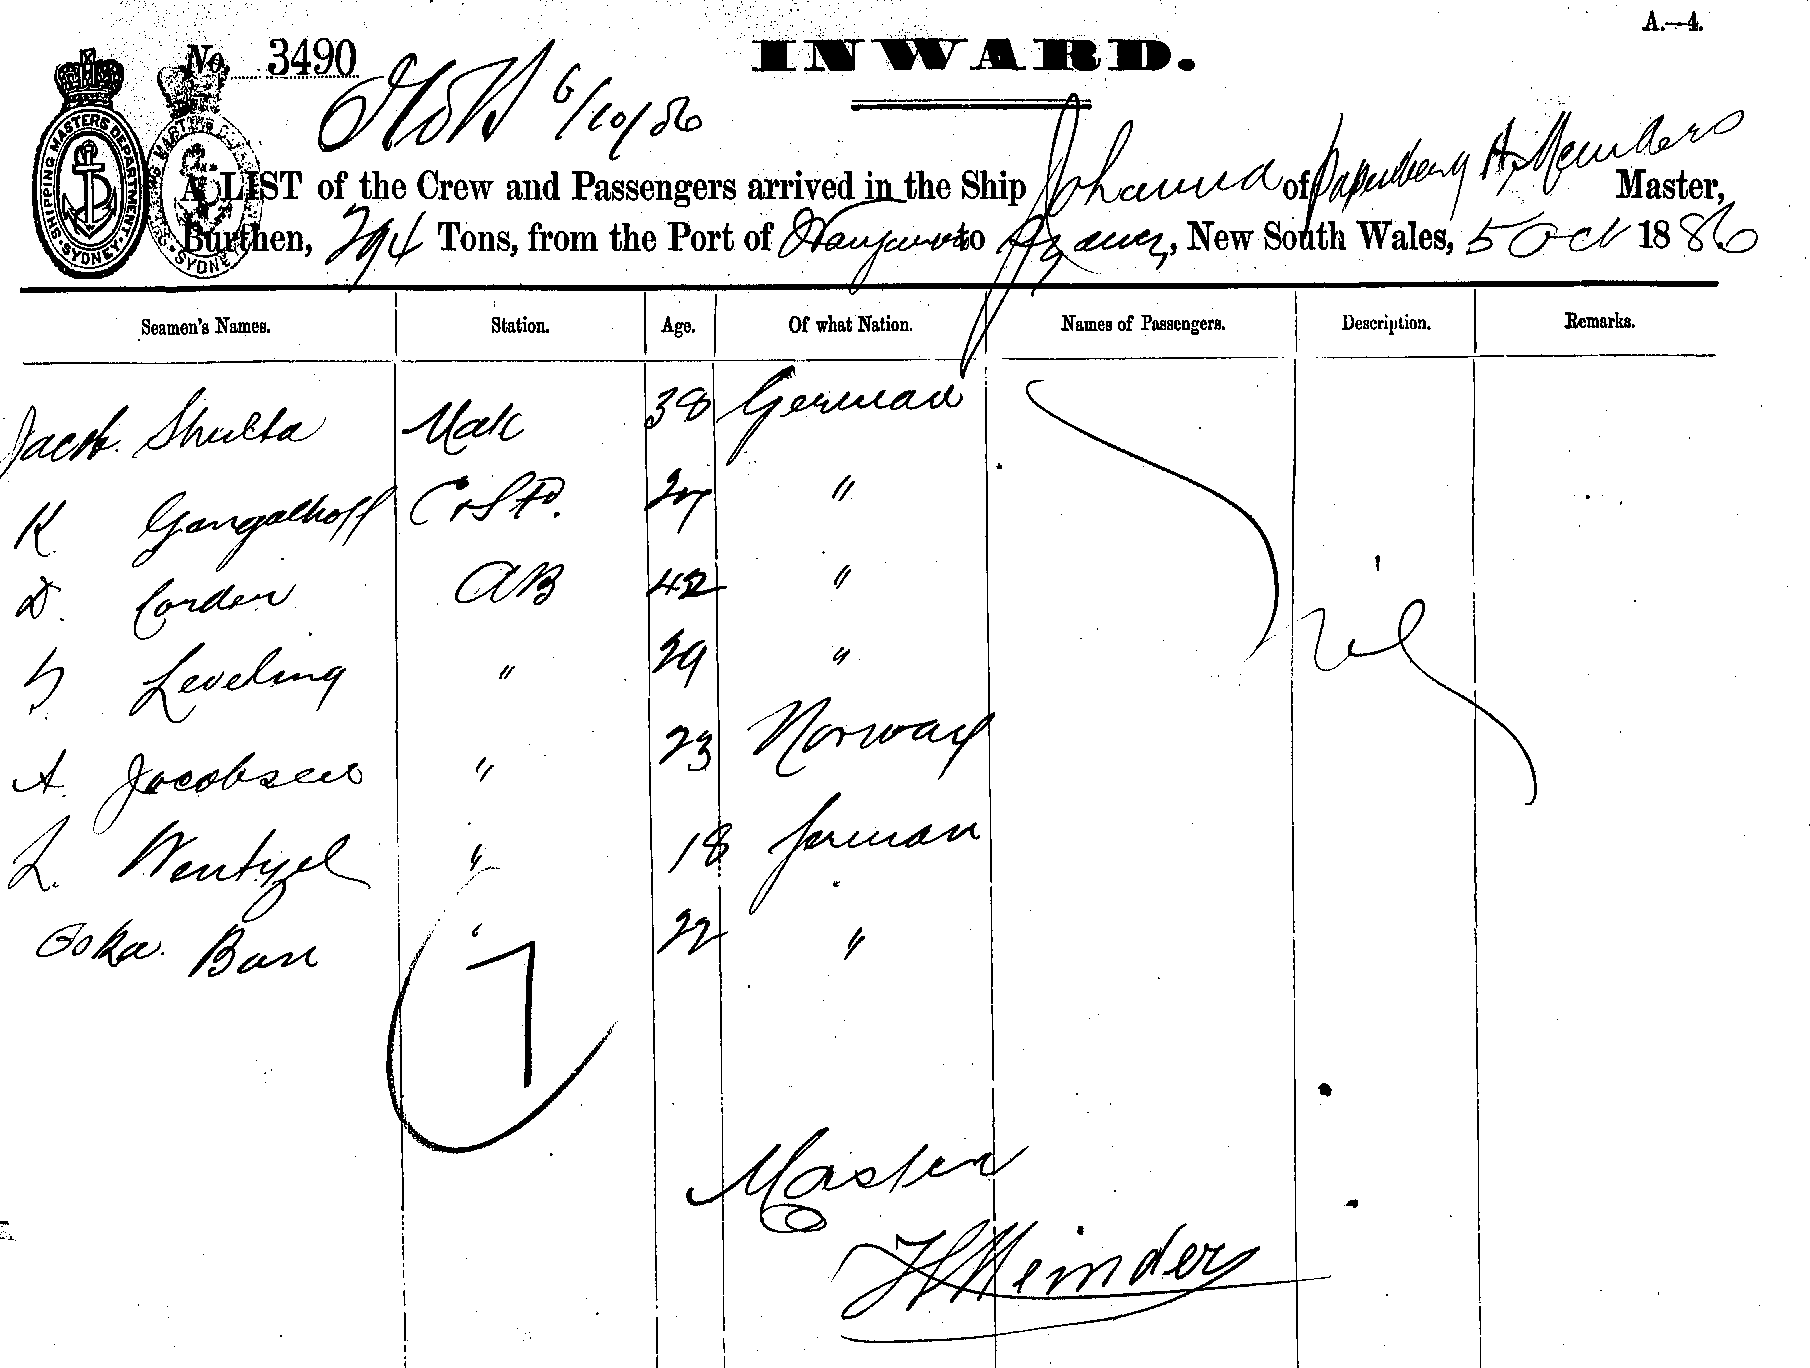 A.—4.
No. 3490 INWARD.
6/10/86
SHIPPING MASTERS DEPARTMENT SYDNEY
A LIST of the Crew and Passengers arrived in the Ship Johanna of Papenberg H. Meinders Master,
Burthen, 294 Tons, from the Port of to Sydney, New South Wales, 5 Oct 1886
Seamen's Names. Station. Age. Of what Nation. Names of Passengers. Description. Remarks.
Jacob. Shulta Mate 38 German
K Gangalhoff C & Std. 27 "
D. Corder AB 42 " Nil
H. Leveling " 29 "
A. Jacobsen " 23 Norway
L. Wentzel " 18 German
Boss " 22 "
7
Master
H Meinders